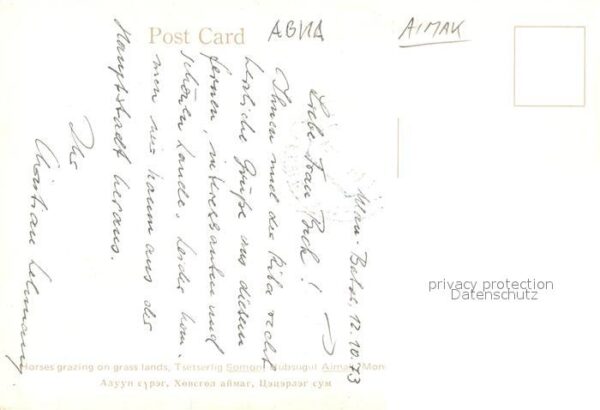 Post Card
АGИА
AIMAK
Ulan-Bator, 12.10.73
Liebe Frau Bock!
Ihnen und der Kiba recht
herzliche Grüße aus diesem
fernen, interessanten und
schönen Lande. Leider kom-
men wir kaum aus der
Hauptstadt heraus.
Ihr
Christian Lehmann
privacy protection
Datenschutz
Horses grazing on grass lands, Tsetserlig Somon, Hubsugul Aimak, Mon
Адуун сүрэг. Хөвсгөл аймаг, Цэцэрлэг сум